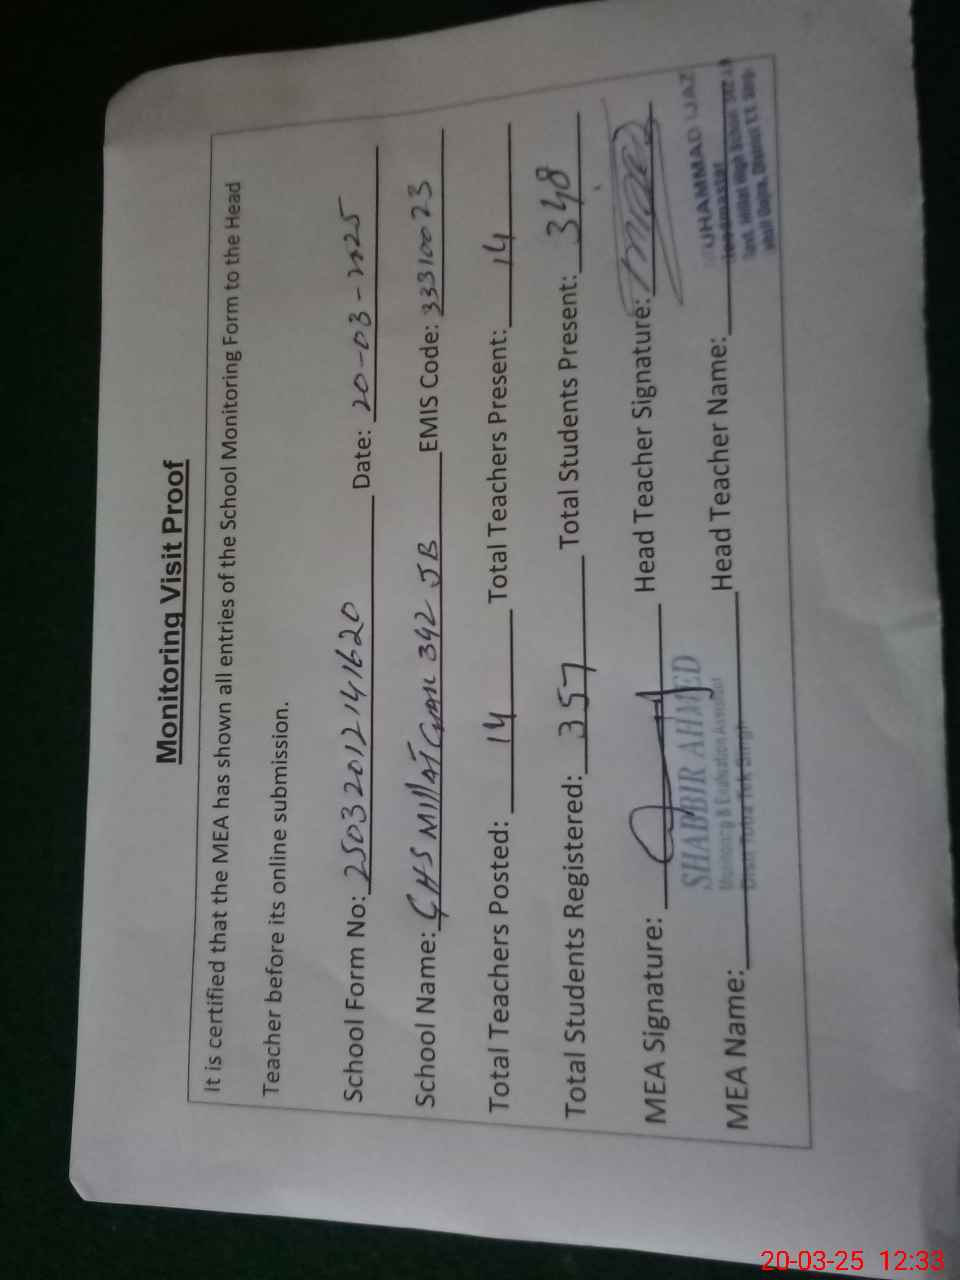 Monitoring Visit Proof
It is certified that the MEA has shown all entries of the School Monitoring Form to the Head
Teacher before its online submission.
School Form No: 25032012141620 Date: 20-03-2025
School Name: GHS Millat 342 JB EMIS Code: 33310023
Total Teachers Posted: 14 Total Teachers Present: 14
Total Students Registered: 357 Total Students Present: 348
MEA Signature: Head Teacher Signature:
SHABBIR AHMED
Monitoring & Evaluation Assistant
MEA Name: Head Teacher Name:
Distt. Toba Tek Singh
MUHAMMAD IJAZ
Headmaster
Govt. Millat High School 342 J.B
District T.T. Sing.
20-03-25 12:33